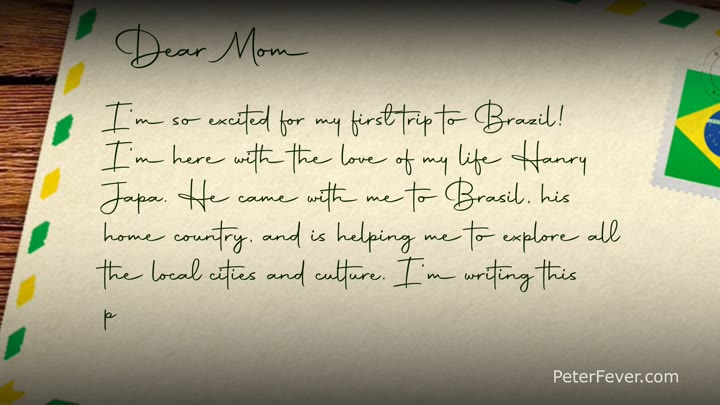 Dear Mom
I'm so excited for my first trip to Brazil!
I'm here with the love of my life Hanry
Japa. He came with me to Brasil, his
home country, and is helping me to explore all
the local cities and culture. I'm writing this
p
PeterFever.com